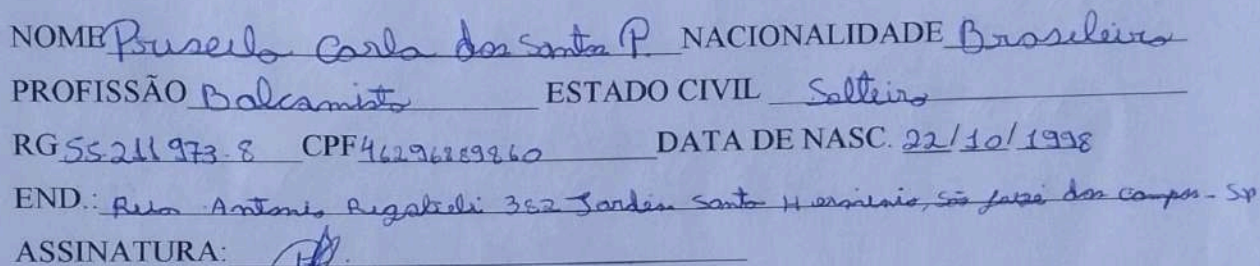 NOME Priscila Carla dos Santos P. NACIONALIDADE Brasileira
PROFISSÃO Balconista ESTADO CIVIL Solteira
RG 55.211 973-8 CPF 46296289860 DATA DE NASC. 22/10/1998
END.: Rua Antonio 382 Jardim Santa Herminia, São José dos Campos - SP
ASSINATURA: